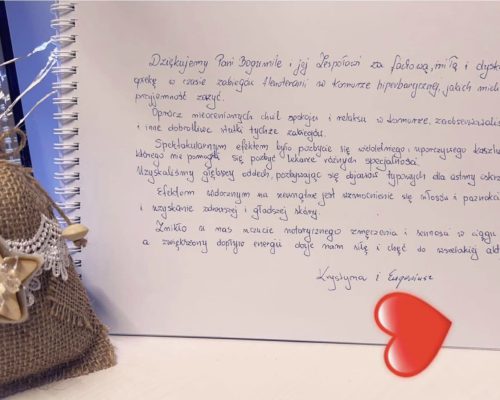 Dziękujemy Pani Bogumile i jej Zespołowi za fachową, miłą i
opiekę w czasie zabiegów tlenoterapii w komorze hiperbarycznej, jakich
przyjemność zażyć.
Oprócz nieocenionych chwil spokoju i relaksu w komorze,
i inne dobrotliwe skutki tychże zabiegów.
Spektakularnym efektem było pozbycie się wieloletniego i uporczywego
którego nie pomogli się pozbyć lekarze różnych specjalności.
Uzyskaliśmy głębszy oddech, pozbywając się objawów typowych dla astmy
Efektem widocznym na zewnątrz jest wzmocnienie się włosów i paznokci
i uzyskanie zdrowszej i gładszej skóry.
Znikło u nas uczucie notorycznego zmęczenia i senności w ciągu
a zwiększony dopływ energii daje nam siłę i chęć do wszelakiej
Krystyna i Eugeniusz